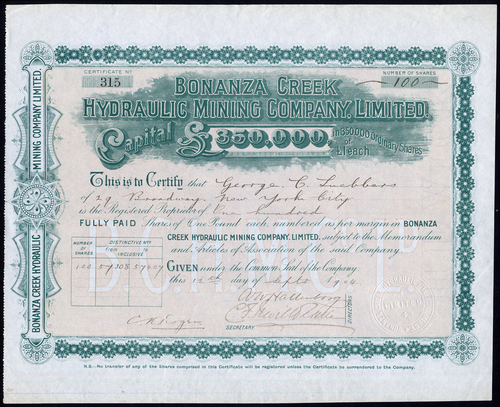 CERTIFICATE No
315
NUMBER OF SHARES
100
BONANZA CREEK
HYDRAULIC MINING COMPANY, LIMITED.
Capital £350,000
In 350000 Ordinary Shares
of
£1 each
This is to Certify that George C. Luebbers
of 29 Broadway, New York City
is the Registered Proprietor of One hundred
FULLY PAID Shares of One Pound each, numbered as per margin in BONANZA
CREEK HYDRAULIC MINING COMPANY, LIMITED. subject to the Memorandum
and Articles of Association of the said Company.
NUMBER OF SHARES
DISTINCTIVE Nos
INCLUSIVE
100
GIVEN under the Common Seal of the Company
this 12th day of Sept 1904
DIRECTORS
SECRETARY
N.B.—No transfer of any of the Shares comprised in this Certificate will be registered unless the Certificate be surrendered to the Company.
BONANZA CREEK HYDRAULIC
MINING COMPANY, LIMITED.